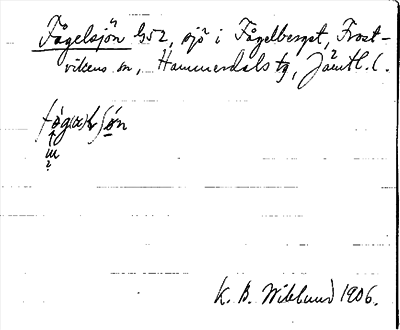 Fågelsjön G52, sjö i Fågelbergst, Frost-
vikens sn, Hammerdals tg, Jämtl. l.
K. B. Wiklund 1906.